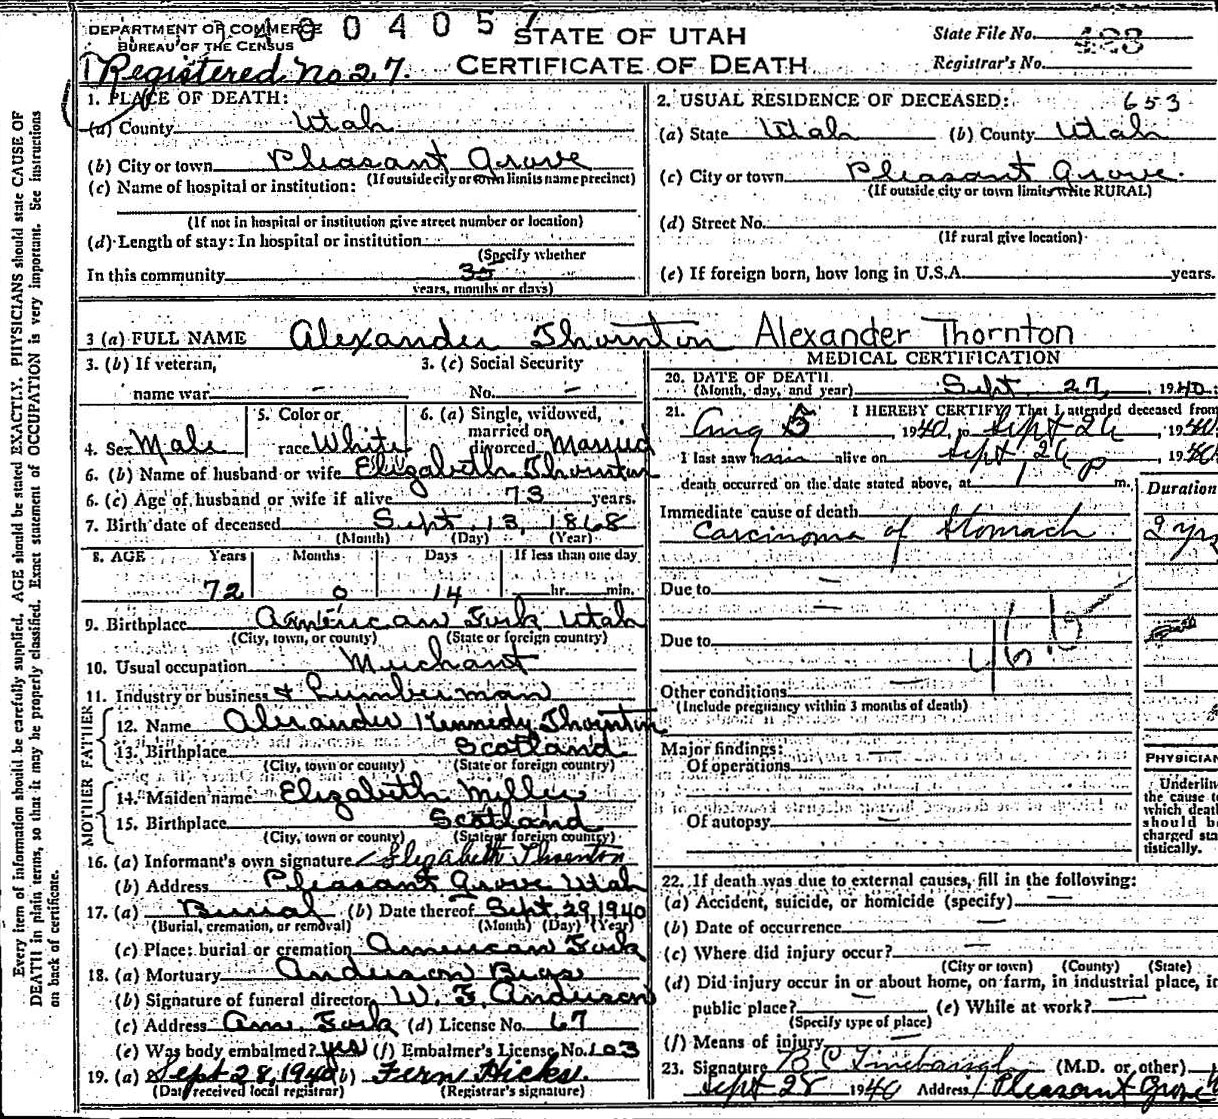 DEPARTMENT OF COMMERCE
BUREAU OF THE CENSUS
0 0 4 0 5 7
STATE OF UTAH
CERTIFICATE OF DEATH
Registered No 27.
State File No. 423
Registrar's No.
Every item of information should be carefully supplied. AGE should be stated EXACTLY. PHYSICIANS should state CAUSE OF
DEATH in plain terms, so that it may be properly classified. Exact statement of OCCUPATION is very important. See instructions
on back of certificate.
1. PLACE OF DEATH:
(a) County Utah
(b) City or town Pleasant Grove
(If outside city or town limits name precinct)
(c) Name of hospital or institution:
(If not in hospital or institution give street number or location)
(d) Length of stay: In hospital or institution
(Specify whether
In this community 35
years, months or days)
2. USUAL RESIDENCE OF DECEASED: 653
(a) State Utah (b) County Utah
(c) City or town Pleasant Grove.
(If outside city or town limits write RURAL)
(d) Street No.
(If rural give location)
(e) If foreign born, how long in U.S.A. years.
3 (a) FULL NAME Alexander Thornton Alexander Thornton
3. (b) If veteran, 3. (c) Social Security
name war – No. –
4. Sex Male
5. Color or
race White
6. (a) Single, widowed,
married or
divorced Married
6. (b) Name of husband or wife Elizabeth Thornton
6. (c) Age of husband or wife if alive 73 years.
7. Birth date of deceased Sept. 13, 1868
(Month) (Day) (Year)
8. AGE Years Months Days If less than one day
72 0 14 hr. min.
9. Birthplace American Fork Utah
(City, town, or county) (State or foreign country)
10. Usual occupation Merchant
11. Industry or business & Lumberman
FATHER
12. Name Alexander Kennedy Thornton
13. Birthplace Scotland
(City, town or county) (State or foreign country)
MOTHER
14. Maiden name Elizabeth Miller
15. Birthplace Scotland
(City, town or county) (State or foreign country)
16. (a) Informant's own signature Elizabeth Thornton
(b) Address Pleasant Grove Utah
17. (a) Burial (b) Date thereof Sept. 29, 1940
(Burial, cremation, or removal) (Month) (Day) (Year)
(c) Place: burial or cremation American Fork
18. (a) Mortuary Anderson Bros
(b) Signature of funeral director W. F. Anderson
(c) Address Am. Fork (d) License No. 67
(e) Was body embalmed? yes (f) Embalmer's License No. 103
19. (a) Sept 28, 1940 (b) Fern Hicks.
(Date received local registrar) (Registrar's signature)
MEDICAL CERTIFICATION
20. DATE OF DEATH
(Month, day, and year) Sept. 27, 1940
21. I HEREBY CERTIFY That I attended deceased from
Aug 5 1940, to Sept 26, 1940
I last saw him alive on Sept 26, 1940
death occurred on the date stated above, at 1 p m.
Duration
Immediate cause of death
Carcinoma of Stomach 2 yrs
Due to –
–
Due to
46.b
Other conditions –
(Include pregnancy within 3 months of death)
Major findings:
Of operations –
Of autopsy –
PHYSICIAN
Underlin
the cause t
which deat
should b
charged sta
tistically.
22. If death was due to external causes, fill in the following:
(a) Accident, suicide, or homicide (specify) –
(b) Date of occurrence –
(c) Where did injury occur? –
(City or town) (County) (State)
(d) Did injury occur in or about home, on farm, in industrial place, in
public place? – (e) While at work? –
(Specify type of place)
(f) Means of injury –
23. Signature B C Linebaugh (M.D. or other)
Sept 28 1940 Address Pleasant Grove